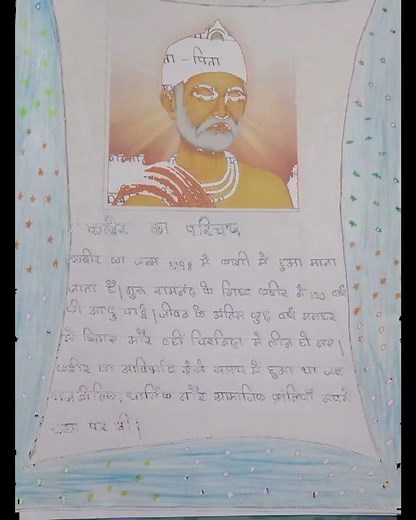 ता - पिता
कबीर का परिचय
कबीर का जन्म 1398 में काशी में हुआ माना
जाता है। गुरु रामानंद के शिष्य कबीर ने 120 वर्ष
की आयु पाई। जीवन के अंतिम कुछ वर्ष मगहर
में बिताए और वहीं चिरनिद्रा में लीन हो गए।
कबीर का आविर्भाव ऐसे समय में हुआ था जब
राजनीतिक, धार्मिक और सामाजिक क्रांतियाँ अपने
पर थी।